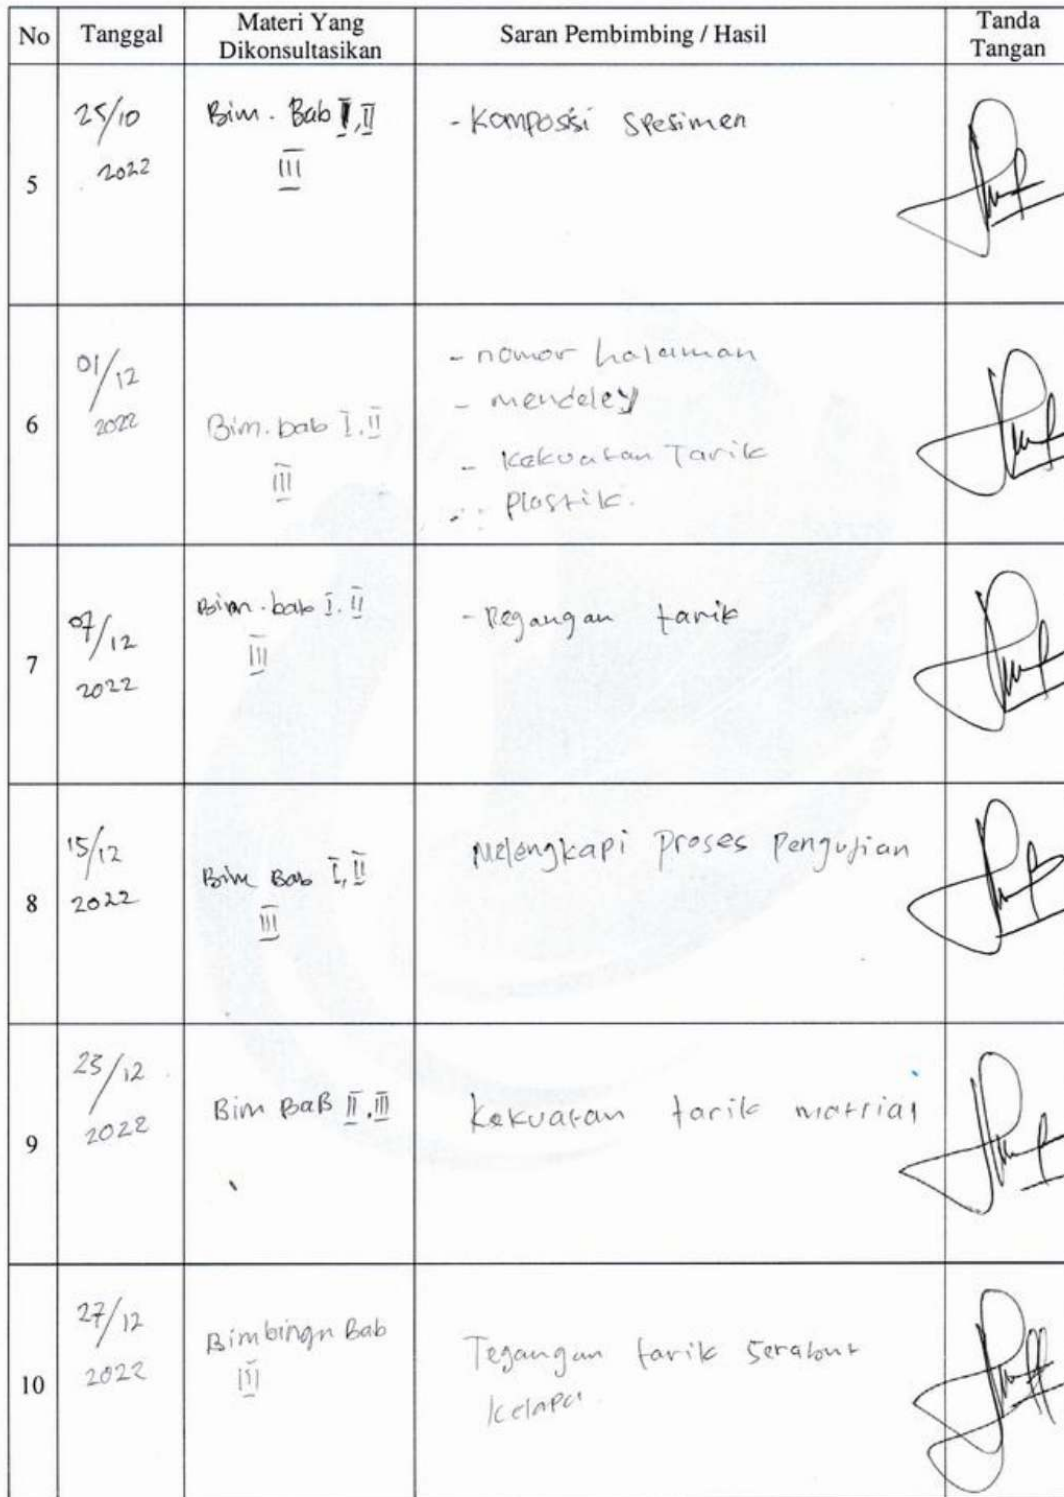 No Tanggal Materi Yang Dikonsultasikan Saran Pembimbing / Hasil Tanda Tangan
5
25/10
2022
Bim. Bab I, II
III
- Komposisi Spesimen
6
01/12
2022
Bim. bab I. II
III
- nomor halaman
- mendeley
- Kekuatan Tarik
Plastik.
7
07/12
2022
Bim. bab I. II
III
- Regangan tarik
8
15/12
2022
Bim Bab I, II
III
Melengkapi Proses Pengujian
9
23/12
2022
Bim BaB II. III
Kekuatan tarik matrial
10
27/12
2022
Bimbingn Bab
III
Tegangan tarik Serabut
Kelapa.